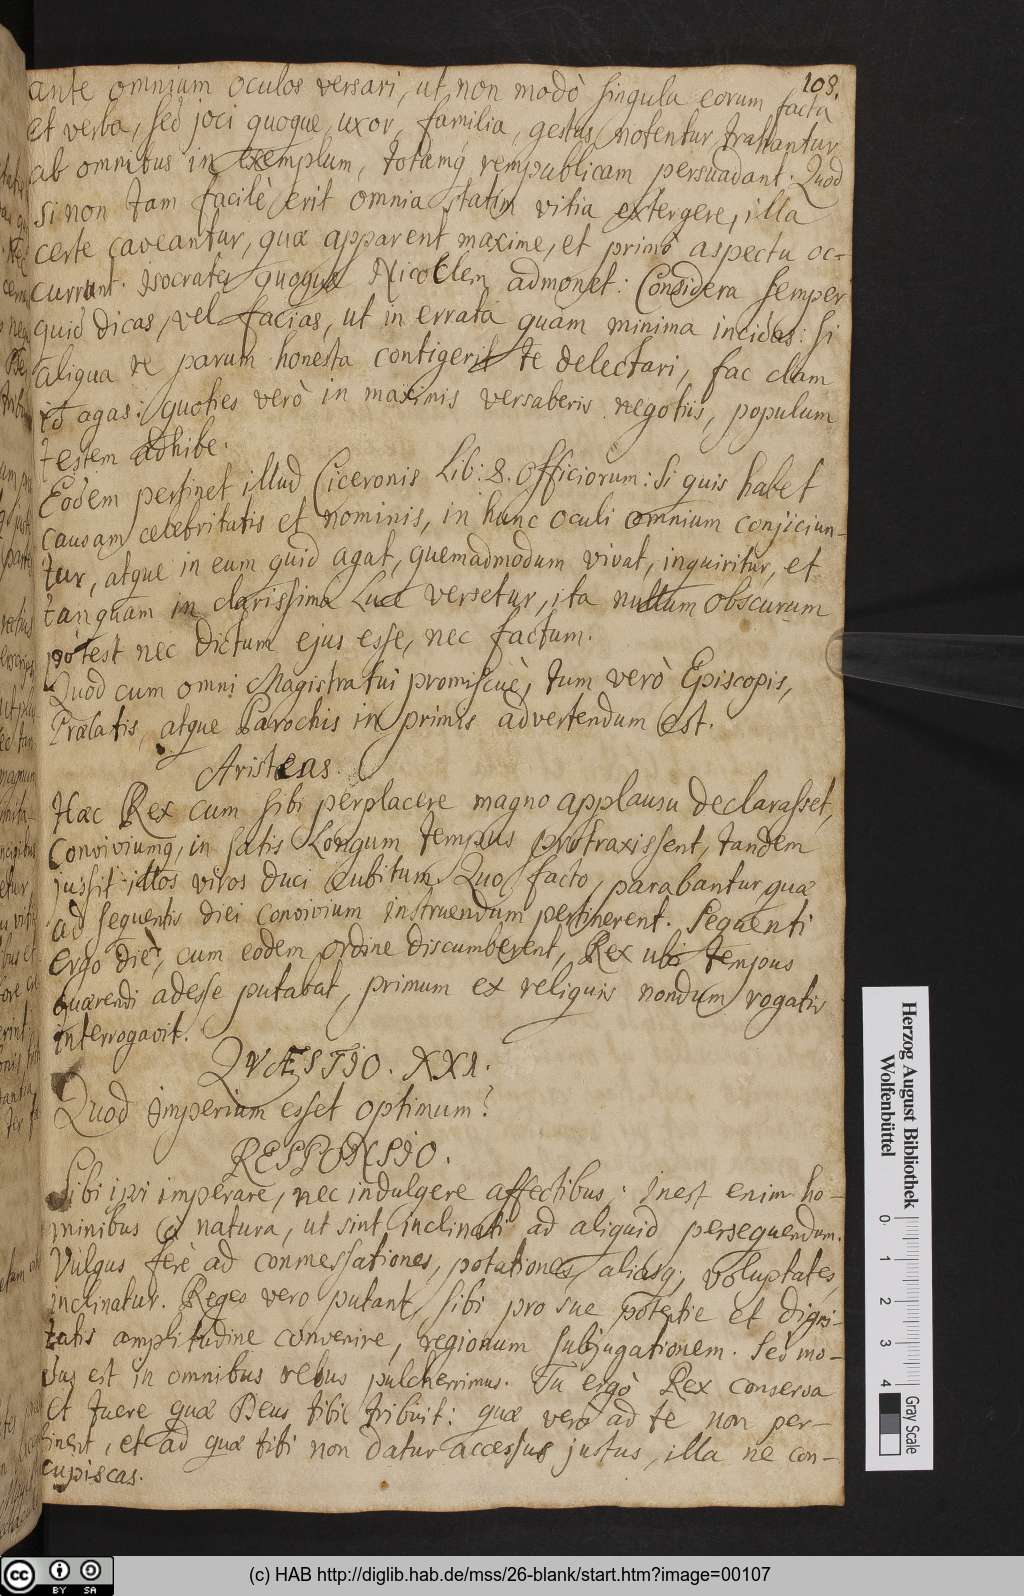 108.
ante omnium oculos versari, ut non modò singula eorum facta
et verba, sed joci quoque, uxor, familia, gestus notentur, trahantur
ab omnibus in exemplum, totamq́ rempublicam persuadant. Quod
si non tam facilè erit omnia statim vitia extergere, illa
certe caveantur, quæ apparent maxime, et primo aspectu oc-
currunt. Isocrates quoque Nicoclem admonet: Considera semper
quid dicas, vel facias, ut in errata quam minima incidas: si
aliqua re parum honesta contigerit te delectari, fac clam
id agas: quoties verò in maximis versaberis negotiis, populum
testem adhibe.
Eodem pertinet illud Ciceronis Lib: 2. Officiorum: Si quis habet
causam celebritatis et nominis, in hunc oculi omnium conjiciun-
tur, atque in eum quid agat, quemadmodum vivat, inquiritur, et
tanquam in clarissima Luce versetur, ita nullum obscurum
potest nec dictum ejus esse, nec factum.
Quod cum omni Magistratui promiscuè, tum verò Episcopis,
Prælatis, atque Parochis in primis advertendum est.
Aristeas.
Hæc Rex cum sibi perplacere magno applausu declarasset,
Conviviumq́, in satis Longum tempus protraxissent, tandem
jussit illos viros duci cubitum. Quo facto, parabantur quæ
ad sequentis diei convivium instruendum pertinerent. Sequenti
ergo die, cum eodem ordine discumberent, Rex ubi tempus
quærendi adesse putabat, primum ex reliquis nondum rogatis
interrogavit.
QVÆSTIO. XXI.
Quod Imperium esset optimum?
RESPONSIO.
Sibi ipsi imperare, nec indulgere affectibus: Inest enim ho-
minibus à natura, ut sint inclinati ad aliquid persequendum.
Vulgus ferè ad conmessationes, potationes aliásq́; voluptates,
inclinatur. Reges vero putant sibi pro sue potentie et digni-
tatis amplitudine convenire, regionum subjugationem. Sed mo-
dus est in omnibus rebus pulcherrimus. Tu ergò Rex conserva
et tuere quæ Deus tibi tribuit: quæ verò ad te non per-
tinent, et ad quæ tibi non datur accessus justus, illa ne con-
cupiscas.
Herzog August Bibliothek
Wolfenbüttel
0 1 2 3 4
Gray Scale
cc BY SA
(c) HAB http://diglib.hab.de/mss/26-blank/start.htm?image=00107